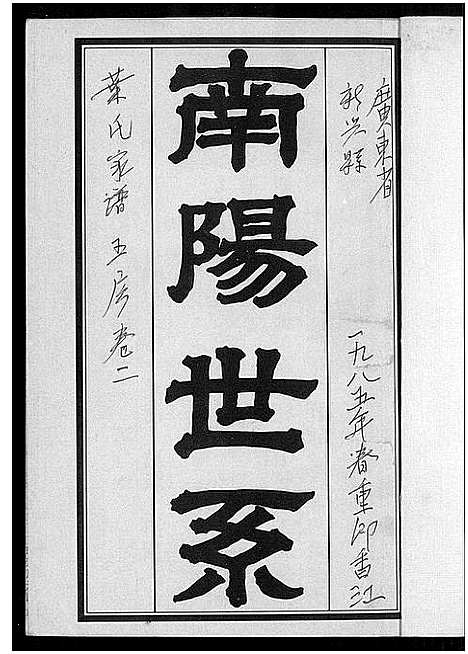 廣東省
新兴縣
一九八五年春重印香江
南陽世系
葉氏家谱 五房卷二